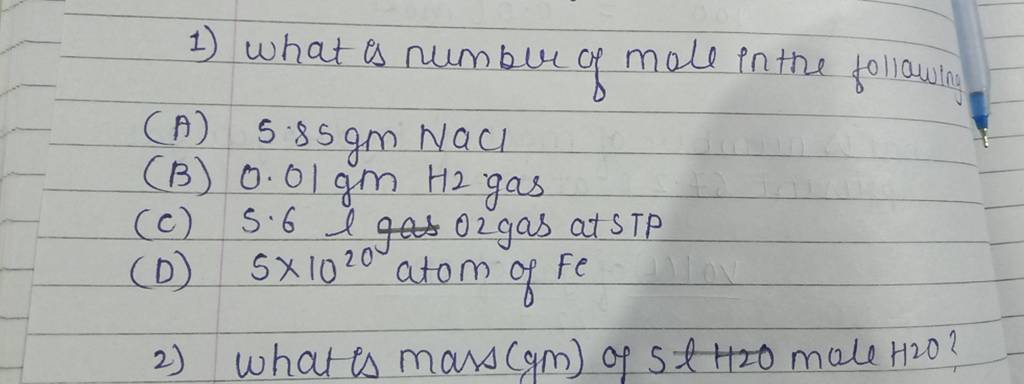 1) what is number of mole in the following
(A) 5.85gm NaCl
(B) 0.01 gm H2 gas
(C) 5.6 l gas O2 gas at STP
(D) 5×10²⁰ atom of Fe
2) what is mass(gm) of 5 l H2O mole H2O?